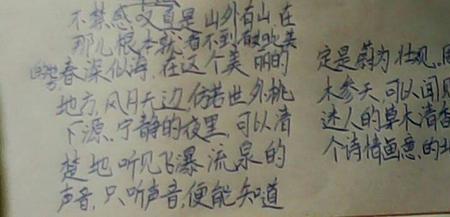 不禁感叹真是山外有山，在
那儿根本就看不到
春深似海，在这个美丽的
地方，风月无边，仿若世外桃
源，宁静的夜里，可以清
楚地听见飞瀑流泉的
声音，只听声音，便能知道
定是蔚为壮观，
木参天，可以闻见
迷人的草木清香
个诗情画意的